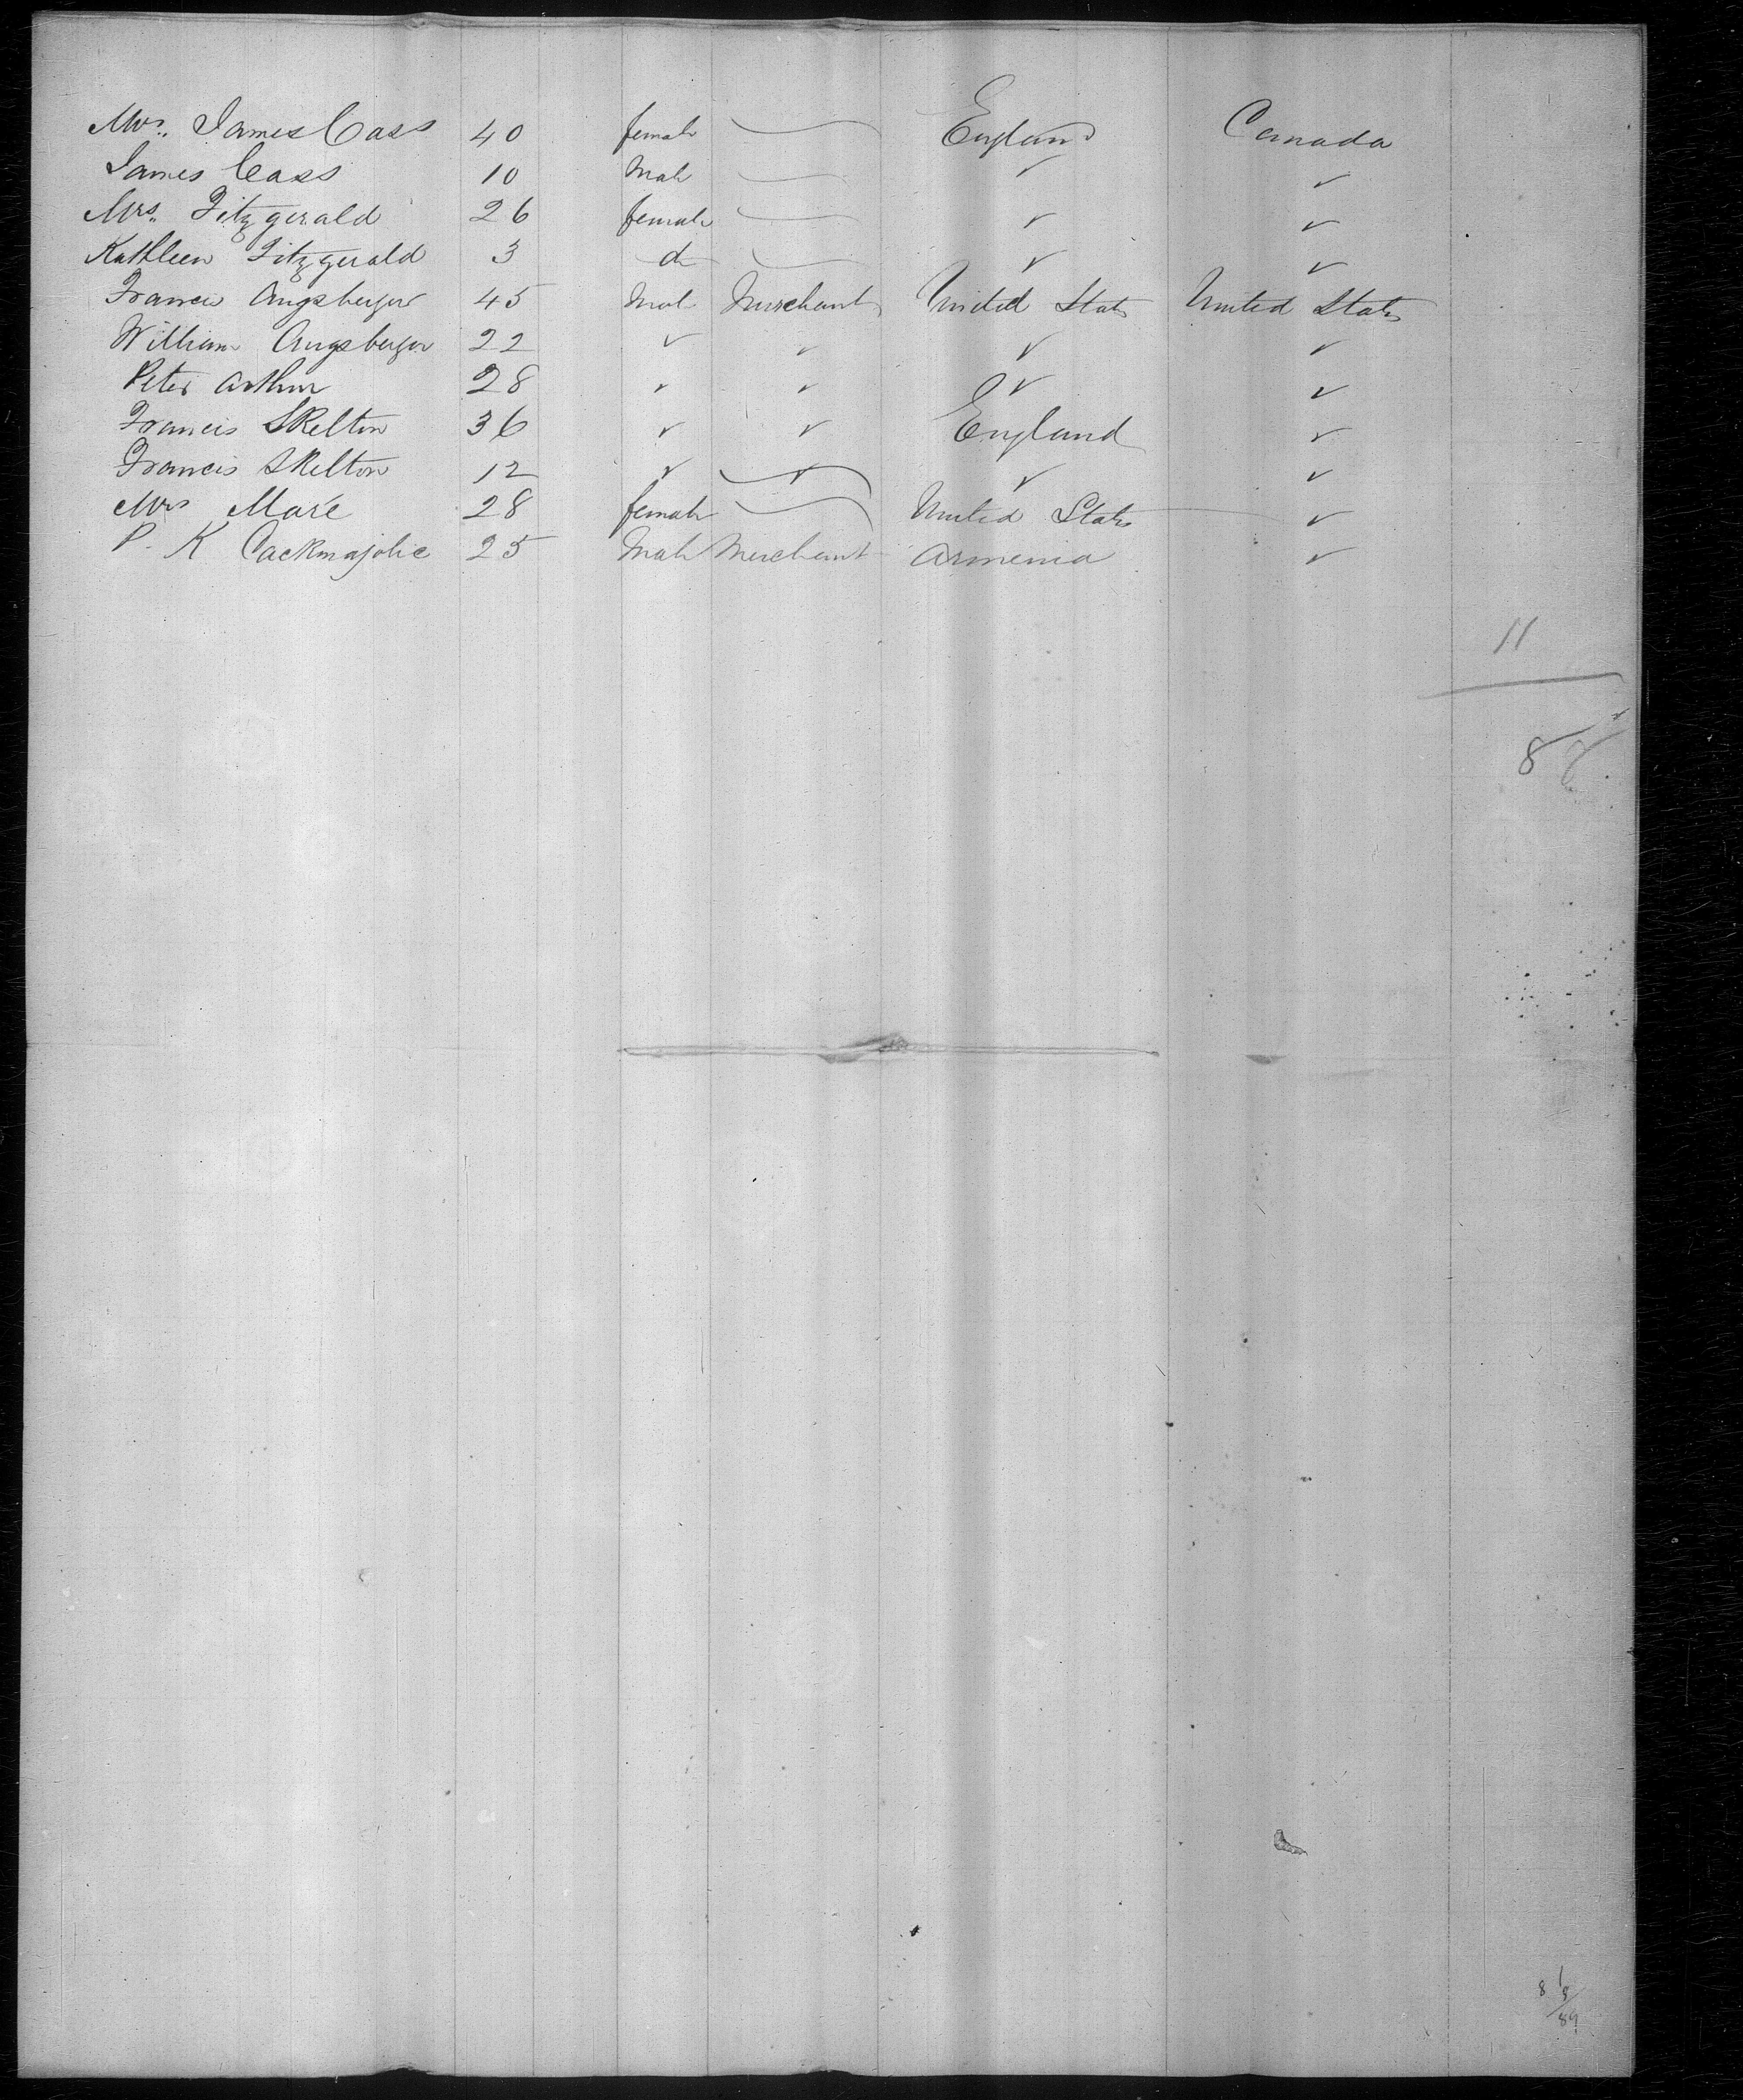 Mrs. James Cass 40 female England Canada
James Cass 10 Male ✓ ✓
Mrs. Fitzgerald 26 female ✓ ✓
Kathleen Fitzgerald 3 d ✓ ✓
Francis Augsberger 45 Male Merchant United States United States
William Augsberger 22 ✓ ✓ ✓ ✓
Peter Arthur 28 ✓ ✓ ✓ ✓
Francis Skelton 36 ✓ ✓ England ✓
Francis Skelton 12 ✓ ✓ ✓ ✓
Mrs Maré 28 female United States ✓
P. K Cackmajolie 25 Male Merchant Armenia ✓
11
8